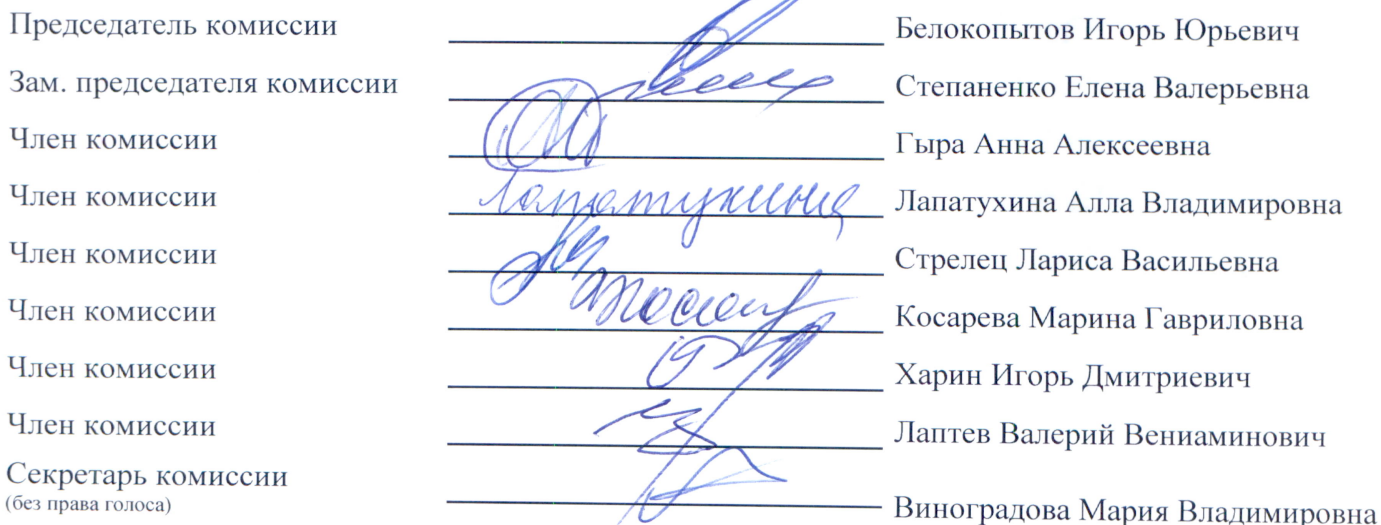 Председатель комиссии Белокопытов Игорь Юрьевич
Зам. председателя комиссии Степаненко Елена Валерьевна
Член комиссии Гыра Анна Алексеевна
Член комиссии Лапатухина Лапатухина Алла Владимировна
Член комиссии Стрелец Лариса Васильевна
Член комиссии Косарева Марина Гавриловна
Член комиссии Харин Игорь Дмитриевич
Член комиссии Лаптев Валерий Вениаминович
Секретарь комиссии
(без права голоса) Виноградова Мария Владимировна